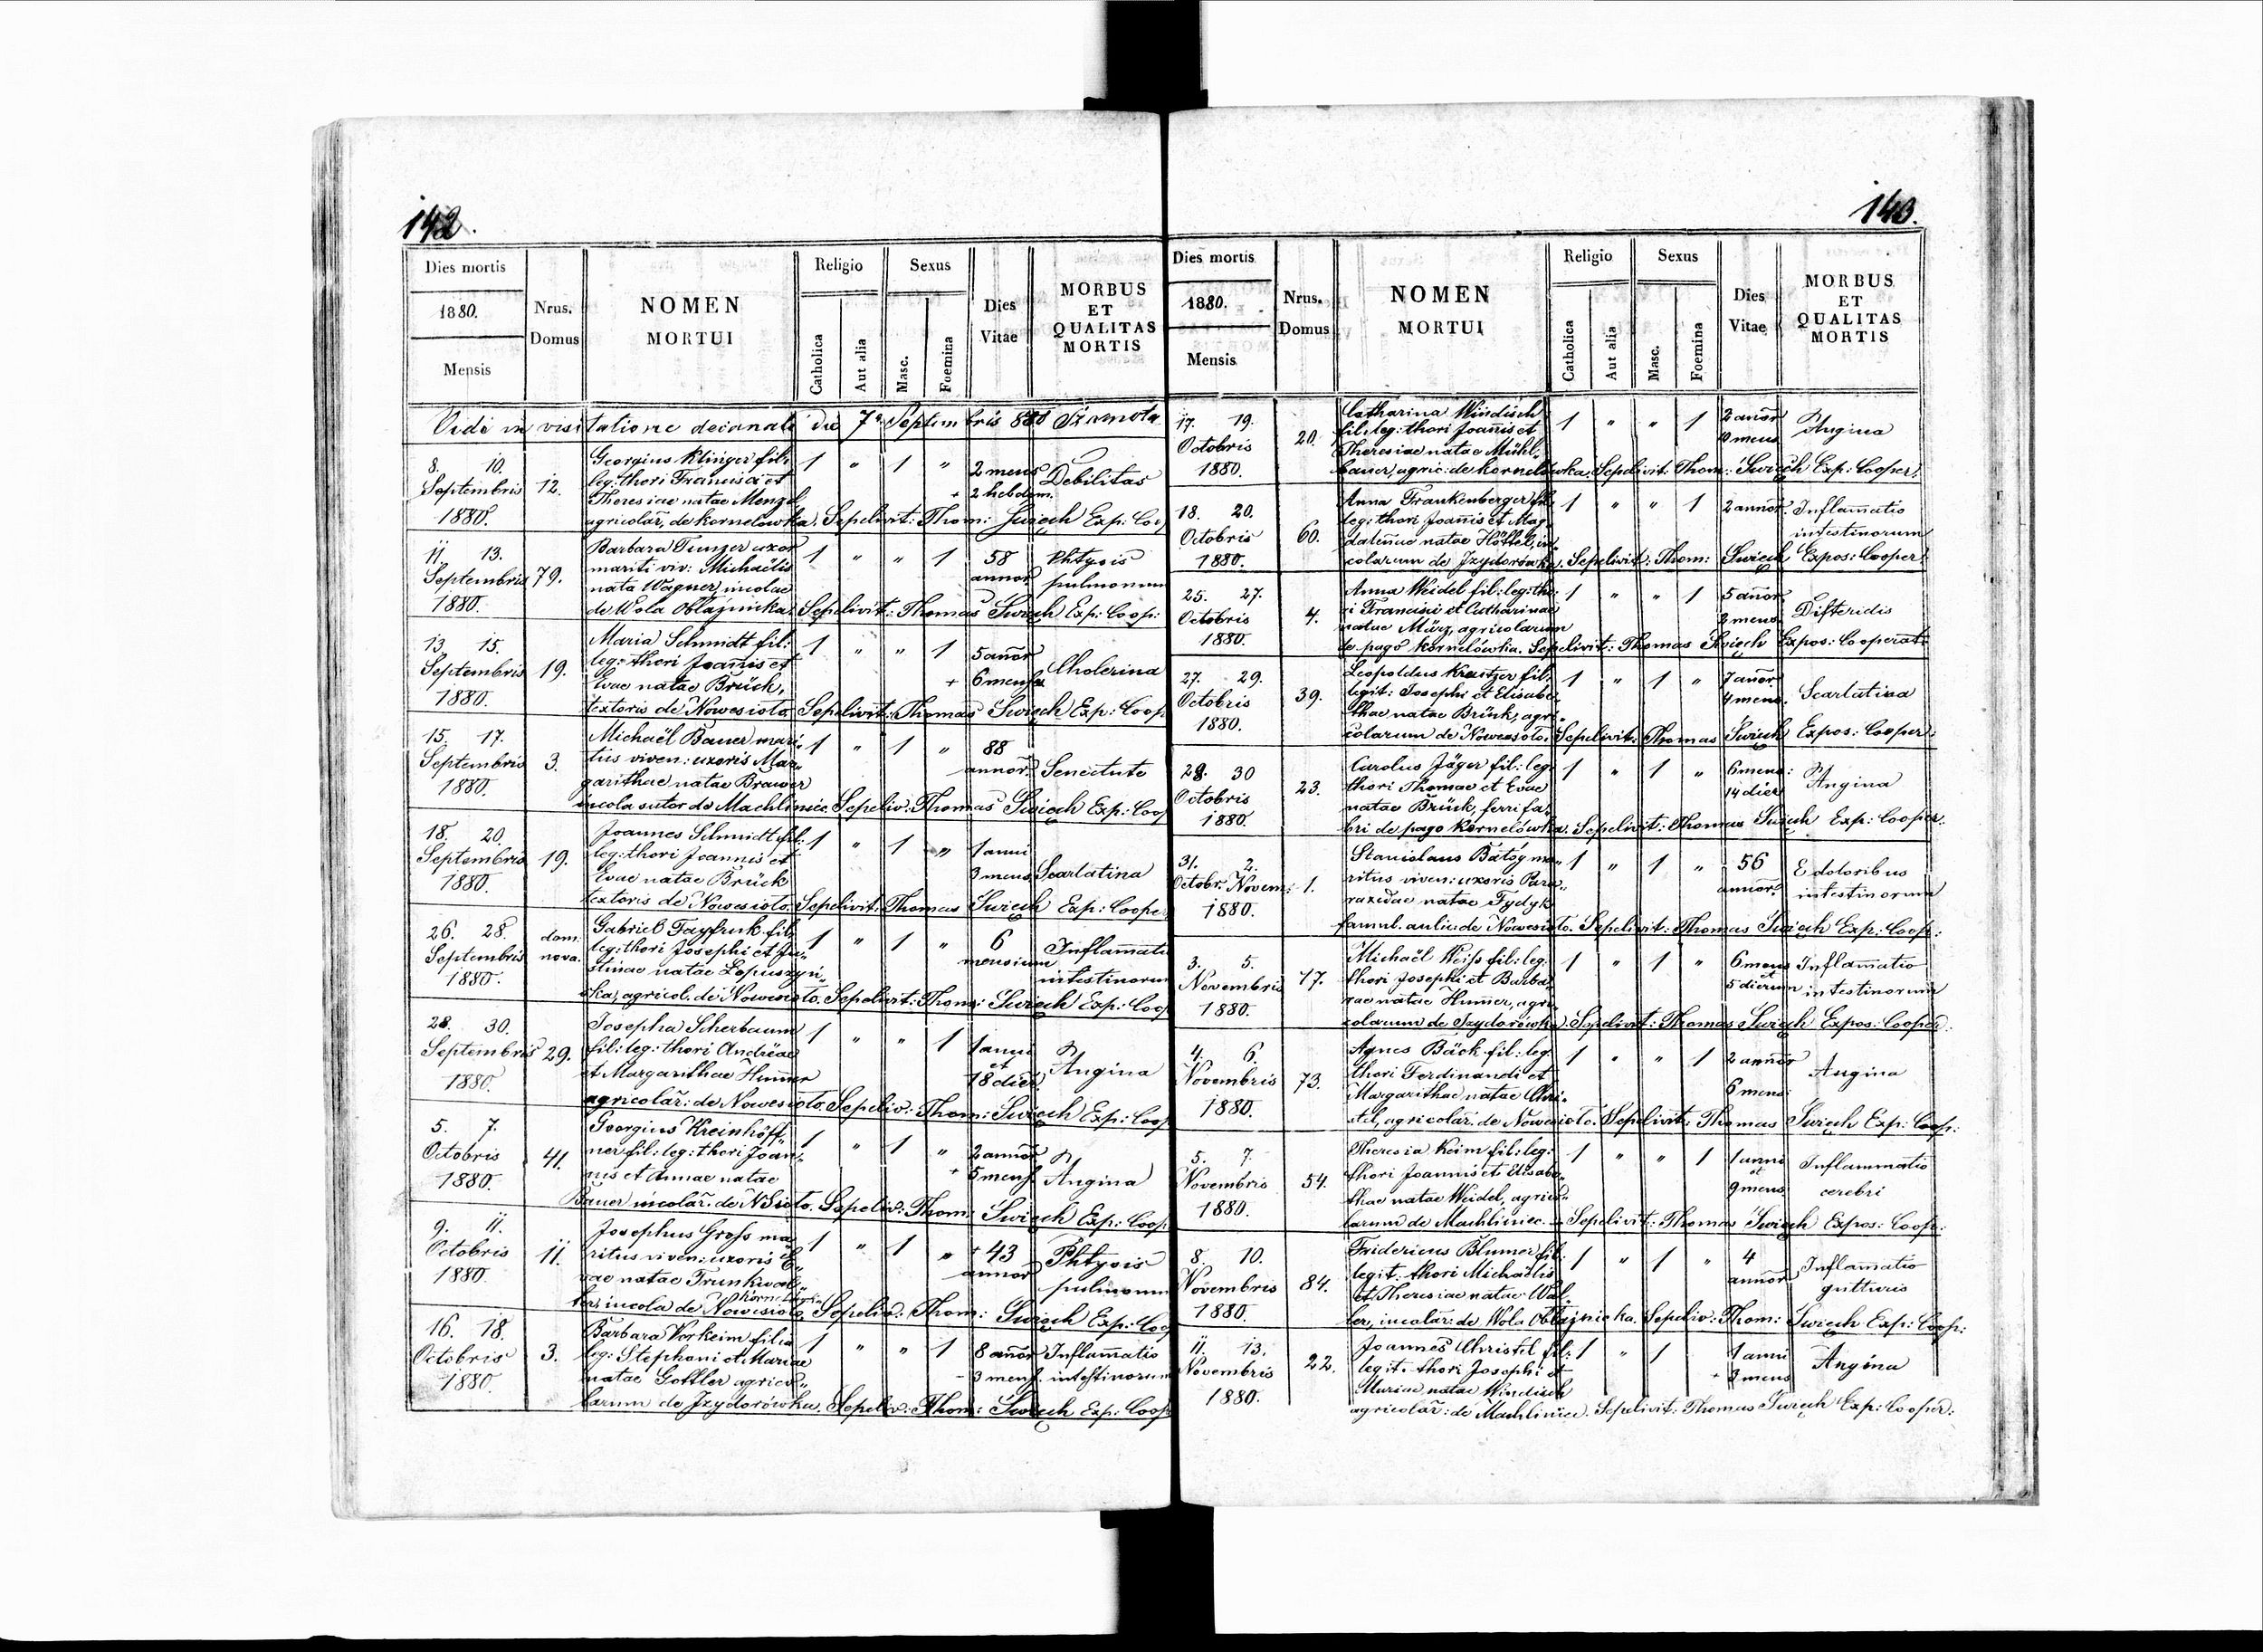 142.
Dies mortis
1880.
Mensis
Nrus.
Domus
NOMEN
MORTUI
Religio
Catholica
Aut alia
Sexus
Masc.
Foemina
Dies
Vitae
MORBUS
ET
QUALITAS
MORTIS
Vidi in visitatione decanali die 7a Septembris 880
8. 10.
Septembris
1880.
12.
Georgius Klinger fil:
leg: thori Francisci et
Theresiae natae Menzel
agricolar̃. de Kornelowka. Sepelivit: Thom: Swięch Exp: Coop
1 " 1 "
2 mens
+ 2 hebdom.
Debilitas
11. 13.
Septembris
1880.
79.
Barbara Tunzer uxor
mariti viv: Michaëlis
nata Wagner, incolae
de Wola Obłaźnicka. Sepelivit: Thomas Swięch Exp: Coop:
1 " " 1
58
annor
Phtysis
pulmonum
13. 15.
Septembris
1880.
19.
Maria Schmidt fil:
leg: thori Joan̄is et
Evae natae Brück,
textoris de Nowesioło. Sepelivit: Thomas Swięch Exp: Coop
1 " " 1
5 an̄or
+ 6 mens
Cholerina
15. 17.
Septembris
1880.
3.
Michaël Bauer mari-
tus viven: uxoris Mar-
garithae natae Brauner
incola sutor de Machliniec. Sepeliv: Thomas Swięch Exp: Coop
1 " 1 "
88
annor.
Senectute
18. 20.
Septembris
1880.
19.
Joannes Schmidt fil:
leg: thori Joannis et
Evae natae Brück
textoris de Nowesioło. Sepelivit: Thomas Swięch Exp: Coope
1 " 1 "
1 anni
3 mens
Scarlatina
26. 28.
Septembris
1880.
dom.
nova.
Gabriel Fayfruk fil:
leg: thori Josephi et Ju-
stinae natae Łopuszyń-
ska, agricol. de Nowesioło. Sepelivit: Thom: Swięch Exp: Coop
1 " 1 "
6
mensium
Inflam̄atio
intestinorum
28. 30.
Septembris
1880.
29.
Josepha Scherbaum
fil: leg: thori Andreae
et Margarithae Hum̄er
agricolar̃: de Nowesioło. Sepeliv: Thom: Swięch Exp: Coop
1 " " 1
1 anni
et
18 dier
Angina
5. 7.
Octobris
1880.
41.
Georgius Kreinhöff-
ner fil: leg: thori Joan-
nis et Annae natae
Bauer incolar̃. de NSioło. Sepeliv: Thom: Swięch Exp: Coop
1 " 1 "
2 annor
+ 5 mens
Angina
9. 11.
Octobris
1880.
11.
Josephus Gross ma-
ritus viven: uxoris E-
vae natae Trunkwal-
ter, incola de Nowesioło. Sepeliv: Thom: Swięch Exp: Coop
1 " 1 "
+ 43
annor
Phtysis
pulmonum
16. 18.
Octobris
1880.
3.
Barbara Vorkeim filia
leg: Stephani et Mariae
natae Gottler agrico-
larum de Izydorówka. Sepeliv: Thom: Swięch Exp: Coop
1 " " 1
8 an̄or
3 mens.
Inflam̄atio
intestinorum
143.
Dies mortis
1880.
Mensis
Nrus.
Domus
NOMEN
MORTUI
Religio
Catholica
Aut alia
Sexus
Masc.
Foemina
Dies
Vitae
MORBUS
ET
QUALITAS
MORTIS
17. 19.
Octobris
1880.
20.
Catharina Windisch
fil: leg: thori Joan̄is et
Theresiae natae Mühl-
bauer, agric: de Kornelówka. Sepelivit. Thom: Swięch Exp: Cooper:
1 " " 1
2 an̄or
10 mens
Angina
18. 20.
Octobris
1880.
60.
Anna Frankenberger fil:
leg: thori Joan̄is et Mag-
dalenae natae Höttel, in-
colarum de Izydorówka. Sepelivit: Thom: Swięch Expos: Cooper:
1 " " 1
2 annor
Inflam̄atio
intestinorum
25. 27.
Octobris
1880.
4.
Anna Weidel fil: leg: tho-
ri Francisci et Catharinae
natae März, agricolarum
de pago Kornelówka. Sepelivit: Thomas Swięch Expos: Cooperat:
1 " " 1
5 an̄or
3 mens.
Difteridis
27. 29.
Octobris
1880.
39.
Leopoldus Kreutzer fil:
legit: Josephi et Elisabe-
thae natae Brück, agri-
colarum de Nowesioło. Sepelivit: Thomas Swięch Expos: Cooper:
1 " 1 "
7 an̄or
4 mens.
Scarlatina
28. 30
Octobris
1880.
23.
Carolus Jäger fil: leg:
thori Thomae et Evae
natae Brück, ferri fa-
bri de pago Kornelówka. Sepelivit: Thomas Swięch Exp: Cooper:
1 " 1 "
6 mens:
14 dier
Angina
31. 2.
Octobr. Novem:
1880.
1.
Stanislaus Batóg ma-
ritus viven: uxoris Para-
raxedae natae Fydyk
famul. aulic de Nowesioło. Sepelivit: Thomas Swięch Exp: Coop:
1 " 1 "
56
annor:
E doloribus
intestinorum
3. 5.
Novembris
1880.
17.
Michaël Weiss fil: leg:
thori Josephi et Barba-
rae natae Hum̄er, agri-
colarum de Izydorówka. Sepelivit: Thomas Swięch Expos: Cooper:
1 " 1 "
6 mens
et
5 dierum
Inflam̄atio
intestinorum
4. 6.
Novembris
1880.
73.
Agnes Bäck fil: leg:
thori Ferdinandi et
Margarithae natae Chri-
stel, agricolar̃. de Nowesioło. Sepelivit: Thomas Swięch Exp: Coop:
1 " " 1
2 annor
6 mens:
Angina
5. 7.
Novembris
1880.
54.
Theresia Keim fil: leg:
thori Joannis et Elisabe-
thae natae Weidel, agrico-
larum de Machliniec. Sepelivit: Thomas Swięch Expos: Coop:
1 " " 1
1 anni
et
9 mens
Inflammatio
cerebri
8. 10.
Novembris
1880.
84.
Fridericus Blumer fil:
legit: thori Michaëlis
et Theresiae natae Wal-
ter, incolar̃: de Wola Obłaźnicka. Sepeliv: Thom: Swięch Exp: Coop:
1 " 1 "
4
annor
Inflam̄atio
gutturis
11. 13.
Novembris
1880.
22.
Joannes Christel fil:
legit. thori Josephi et
Mariae natae Windisch
agricolar̃: de Machliniec. Sepelivit: Thomas Swięch Exp: Cooper:
1 " 1
1 anni
+ 3 mens
Angina